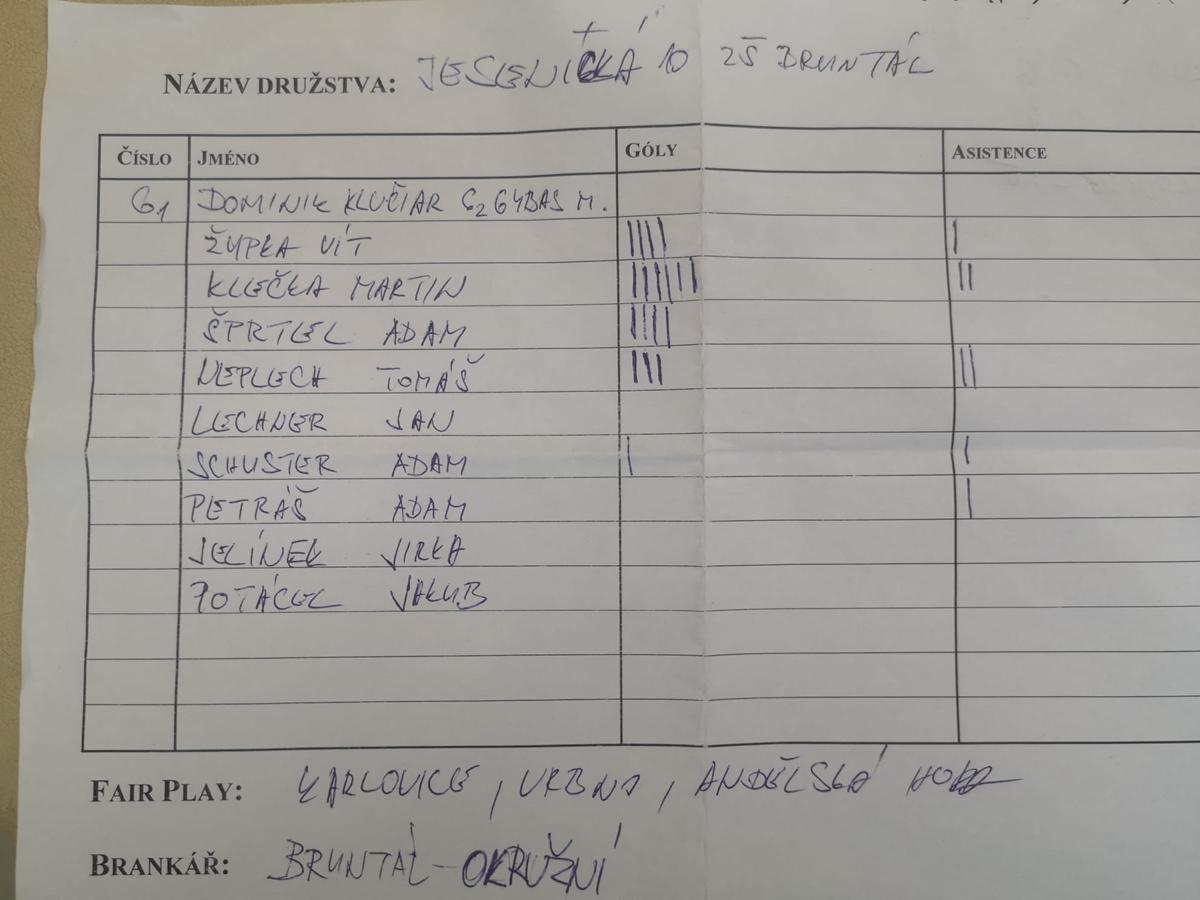 NÁZEV DRUŽSTVA: JESENICKÁ 10 ZŠ BRUNTÁL
ČÍSLO JMÉNO GÓLY ASISTENCE
G1 DOMINIK KLUČIAR G2 GYBAS M.
ŽUPKA VÍT |||| |
KLEČKA MARTIN |||||| ||
ŠPRTEL ADAM ||||
NEPLECH TOMÁŠ ||| ||
LECHNER JAN
SCHUSTER ADAM | |
PETRÁŠ ADAM |
JELÍNEK JIRKA
POTÁCEL JAKUB
FAIR PLAY: KARLOVICE, VRBNO, ANDĚLSKÁ
BRANKÁŘ: BRUNTÁL - OKRUŽNÍ